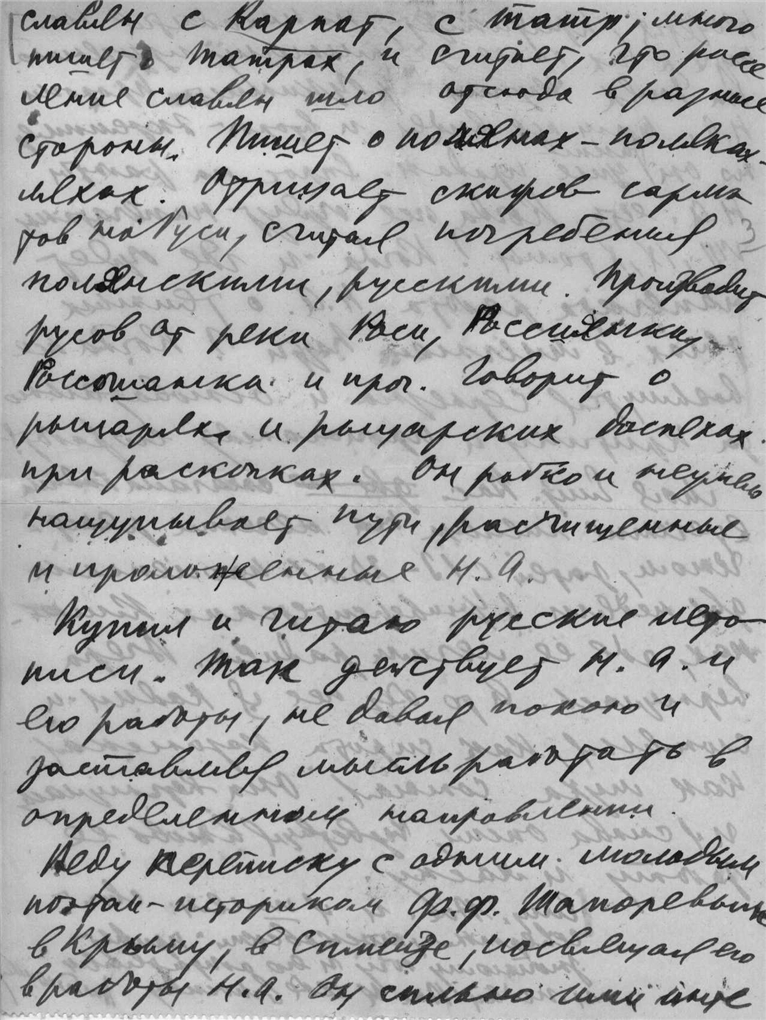 славян с Карпат, с Татр; много
пишет о Татрах, и считает, что рассе
ление славян шло отсюда в разные
стороны. Пишет о полянах – поляках –
ляхах. Отрицает скифов сарма
тов на Руси, считая погребения
полянскими, русскими. Производит
русов от реки Роси,
и проч. Говорит о
рыцарях и рыцарских доспехах
при раскопках. Он робко и неумело
нащупывает пути, расчищенные
и проложенные Н. А.
Купил и читаю русские лето
писи. Так действует Н. А. и
его работы, не давая покою и
заставляя мысль работать в
определенном направлении.
Веду переписку с одним молодым
поэтом-историком Ф. Ф.
в Крыму, в Симеизе, посвящая его
в работы Н. А. Он сильно инте